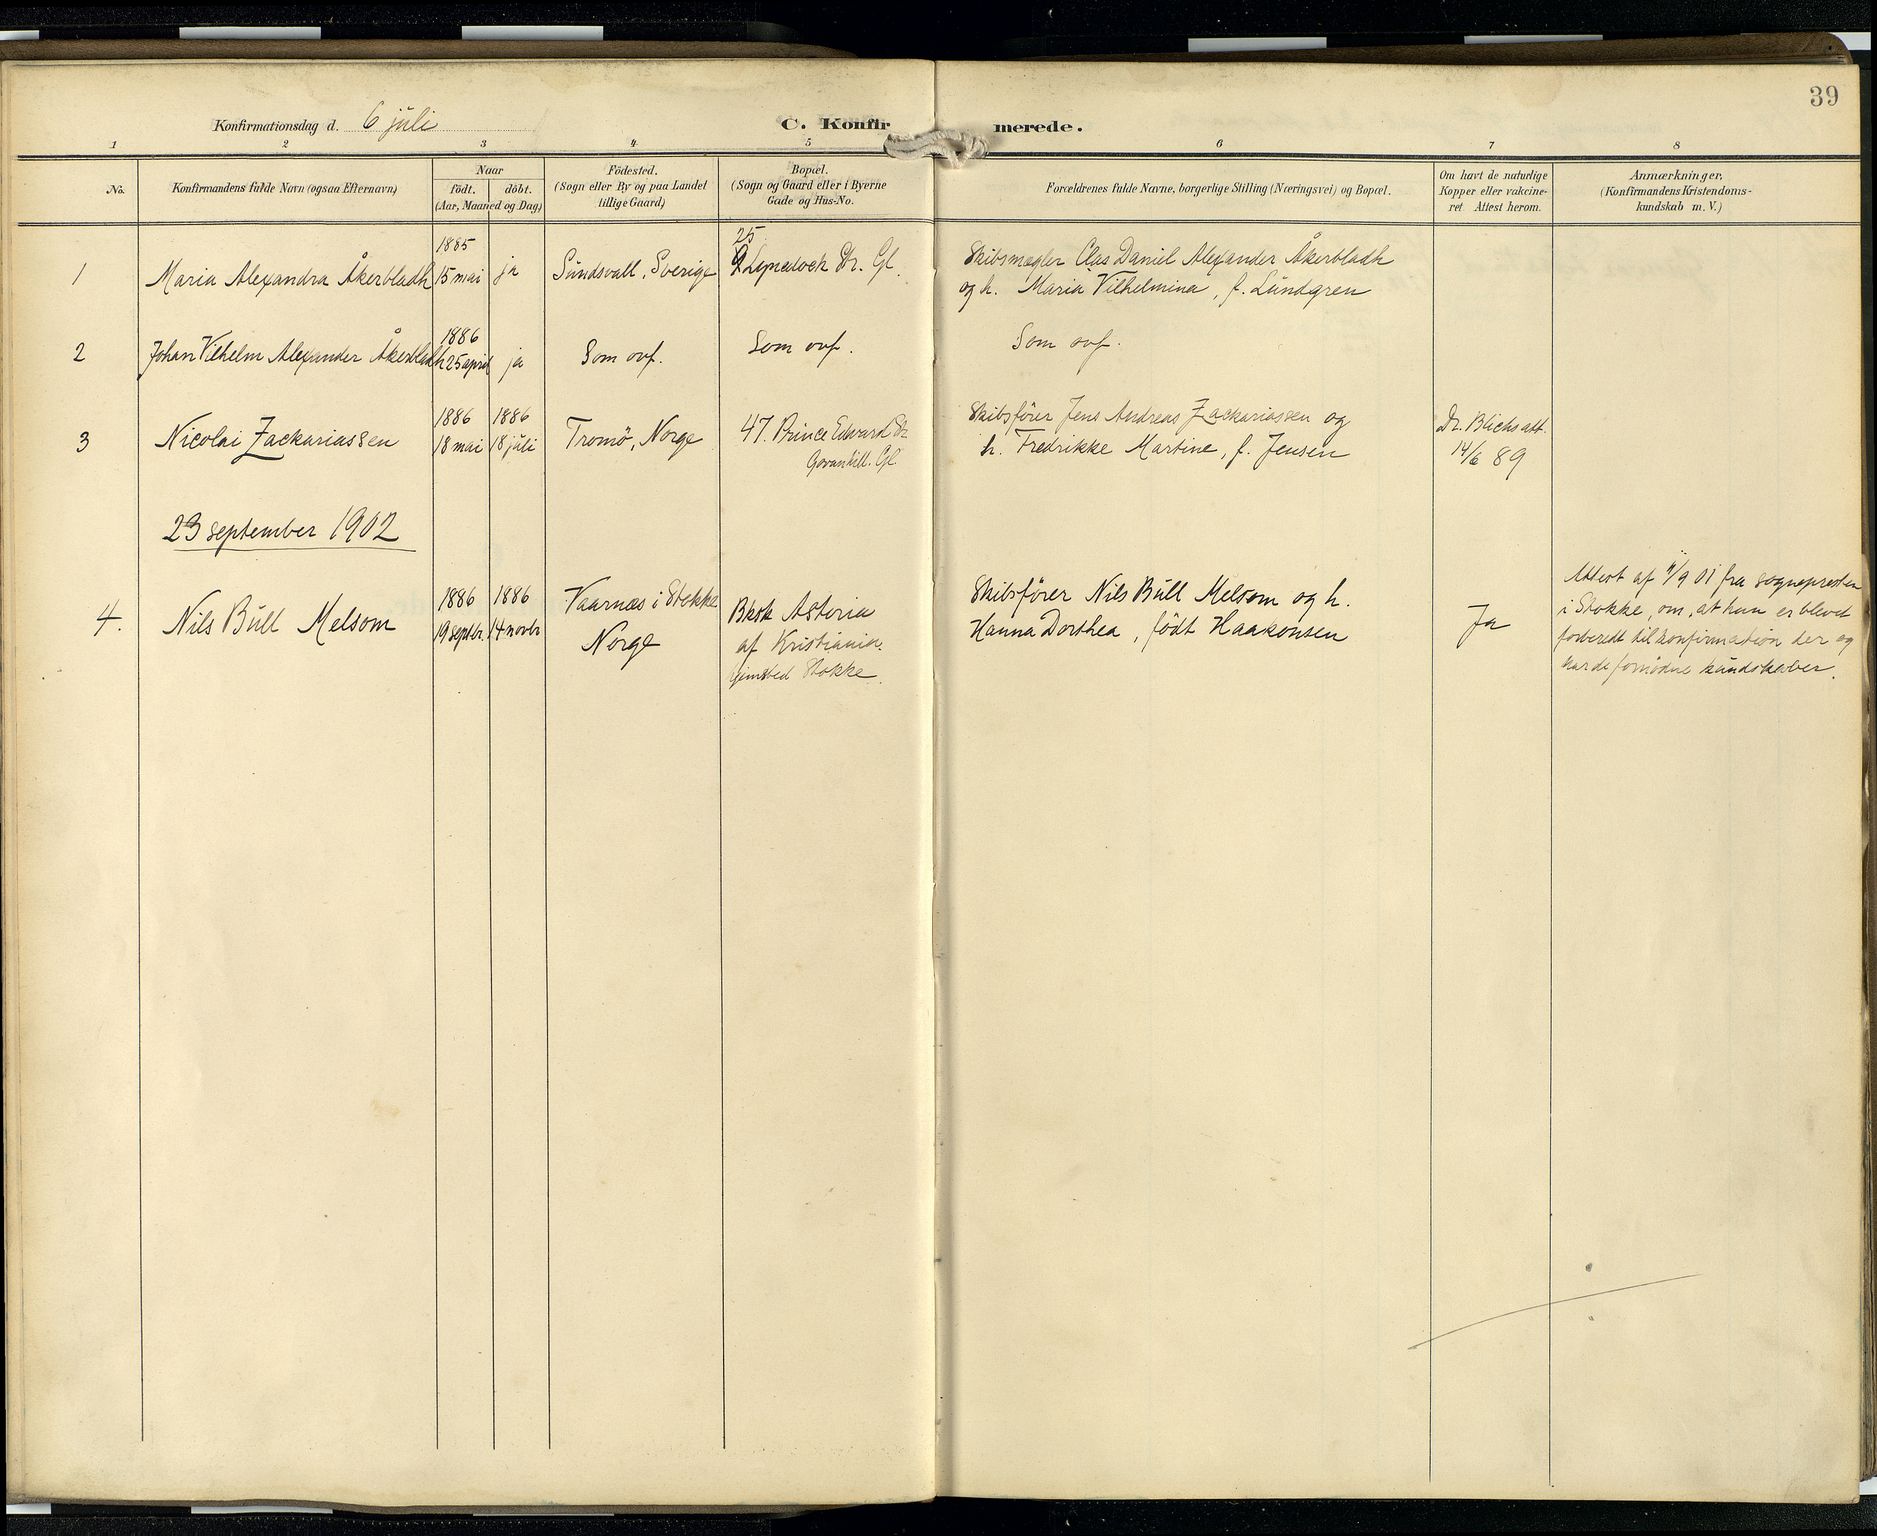 39
Konfirmationsdag d. 6 juli
C. Konfirmerede.
1 2 3 4 5 6 7 8
No.
Konfirmandens fulde Navn (ogsaa Efternavn)
Naar
født. døbt.
(Aar, Maaned og Dag)
Fødested.
(Sogn eller By og paa Landet
tillige Gaard)
Bopæl.
(Sogn og Gaard eller i Byerne
Gade og Hus-No.
Forældrenes fulde Navne, borgerlige Stilling (Næringsvei) og Bopæl.
Om havt de naturlige
Kopper eller vakcine-
ret Attest herom.
Anmærkninger.
(Konfirmandens Kristendoms-
kundskab m. V.)
1
Maria Alexandra Åkerbladh
1885
15 mai
ja
Sundsvall, Sverige
25
Lynedock Str. Gl.
Skibsmægler Clas Daniel Alexander Åkerbladh
og h. Maria Vilhelmina, f. Lundgren
2
Johan Vilhelm Alexander Åkerbladh
1886
25 april
ja
Som ovf.
Som ovf.
Som ovf.
3
Nicolai Zackariassen
1886
18 mai
1886
18 juli
Tromø, Norge
47. Prince Edward Str.
Govanhill. Gl.
Skibsfører Jens Andreas Zackariassen og
h. Fredrikke Martine, f. Jensen
Dr. Blichs att.
14/6 89
23 september 1902
4.
Nils Bull Melsom
1886
19 septbr.
1886
14 novbr
Vaarnæs i Stokke
Norge
Bksk Astoria
af Kristiania.
Hjemsted Stokke.
Skibsfører Nils Bull Melsom og h.
Hanna Dorthea, født Haakonsen
Ja
Attest af /9 01 fra sognepresten
i Stokke, om, at han er blevet
forberedt til konfirmation der og
har de fornødne kundskaber.